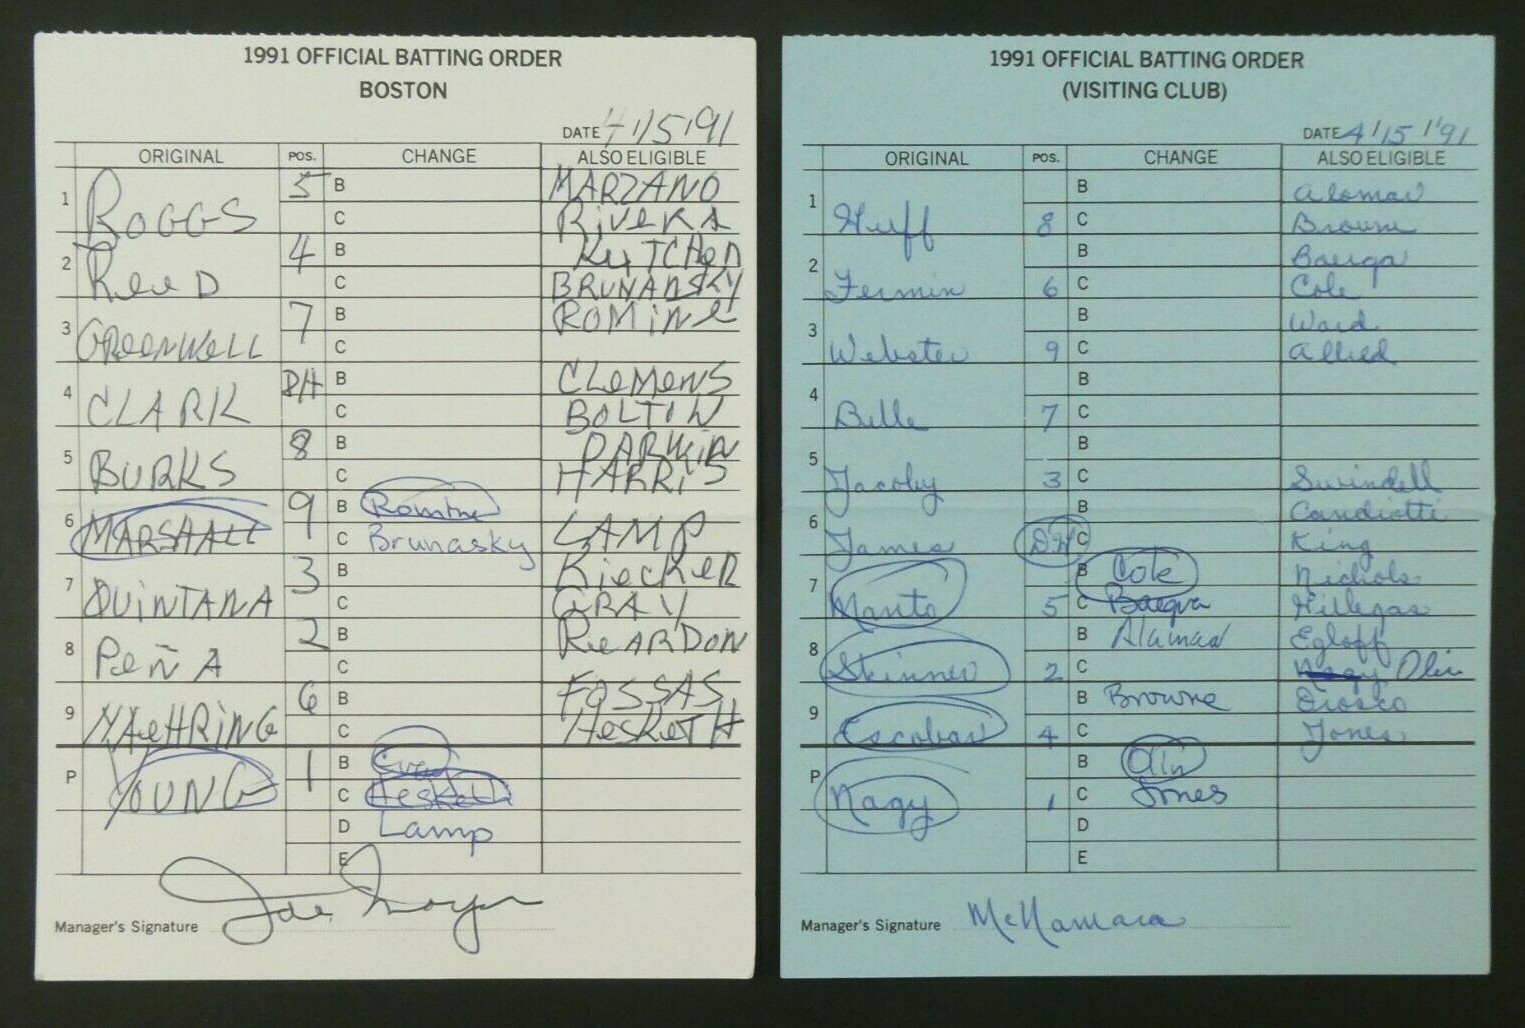 1991 OFFICIAL BATTING ORDER
BOSTON
DATE 4/15/91
ORIGINAL POS. CHANGE ALSO ELIGIBLE
1 BOGGS 5 B MARZANO
C RiveRA
2 Reed 4 B KuTCHeR
C BRUNANSKY
3 GReenWeLL 7 B ROMiNe
C
4 CLARK DH B CLeMeNS
C BOLTIN
5 BURKS 8 B DARWiN
C HARRiS
6 MARSHALL 9 B Romine
C Brunasky LAMP
7 QUiNTANA 3 B KiecKeR
C GRAY
8 PeÑA 2 B ReARDON
C
9 NAeHRiNG 6 B FOSSAS
C HesKeTH
P YOUNG 1 B Gray
C Hesketh
D Lamp
E
Manager's Signature Joe Morgan
1991 OFFICIAL BATTING ORDER
(VISITING CLUB)
DATE 4/15/'91
ORIGINAL POS. CHANGE ALSO ELIGIBLE
1 B Alomar
Huff 8 C Browne
2 B Baerga
Fermin 6 C Cole
3 B Ward
Webster 9 C Allred
4 B
Belle 7 C
5 B
Jacoby 3 C Swindell
6 B Candiotti
James DH C King
7 B Cole Nichols
Manto 5 C Baerga Hillegas
8 B Alomar Egloff
Skinner 2 C Nagy Olin
9 B Browne Orosco
Escobar 4 C Jones
P B Olin
Nagy 1 C Jones
D
E
Manager's Signature McNamara